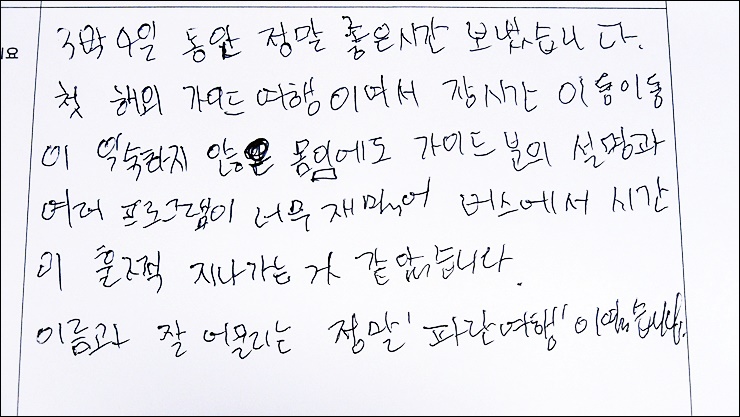 3박4일 동안 정말 좋은시간 보냈습니다.
첫 해외 가이드 여행이여서 장시간 이동이동
이 익숙하지 않은 몸임에도 가이드 분의 설명과
여러 프로그램이 너무 재밌어 버스에서 시간
이 훌쩍 지나가는 거 같았습니다.
이름과 잘 어울리는 정말 '파란여행' 이였습니다.